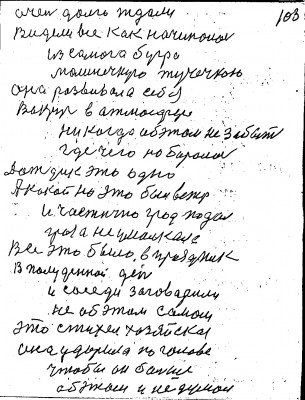 103
очен долго ждали
Видели все как начиналос
из самога бугра
малинечкую тучечкою
она развивала себя
Вакруг в атмосфере
никогда абэтом не забыт
где чего набирало
Дождик это одно
А какой на это был ветр
и частично град подал
гроза не умалкала
Все это было, в праздник
В полуденной ден
и соседи заговарили
не абэтом самом
это стихея хозяйская
она ударила по голове
чтобы он больше
абэтом и не думал